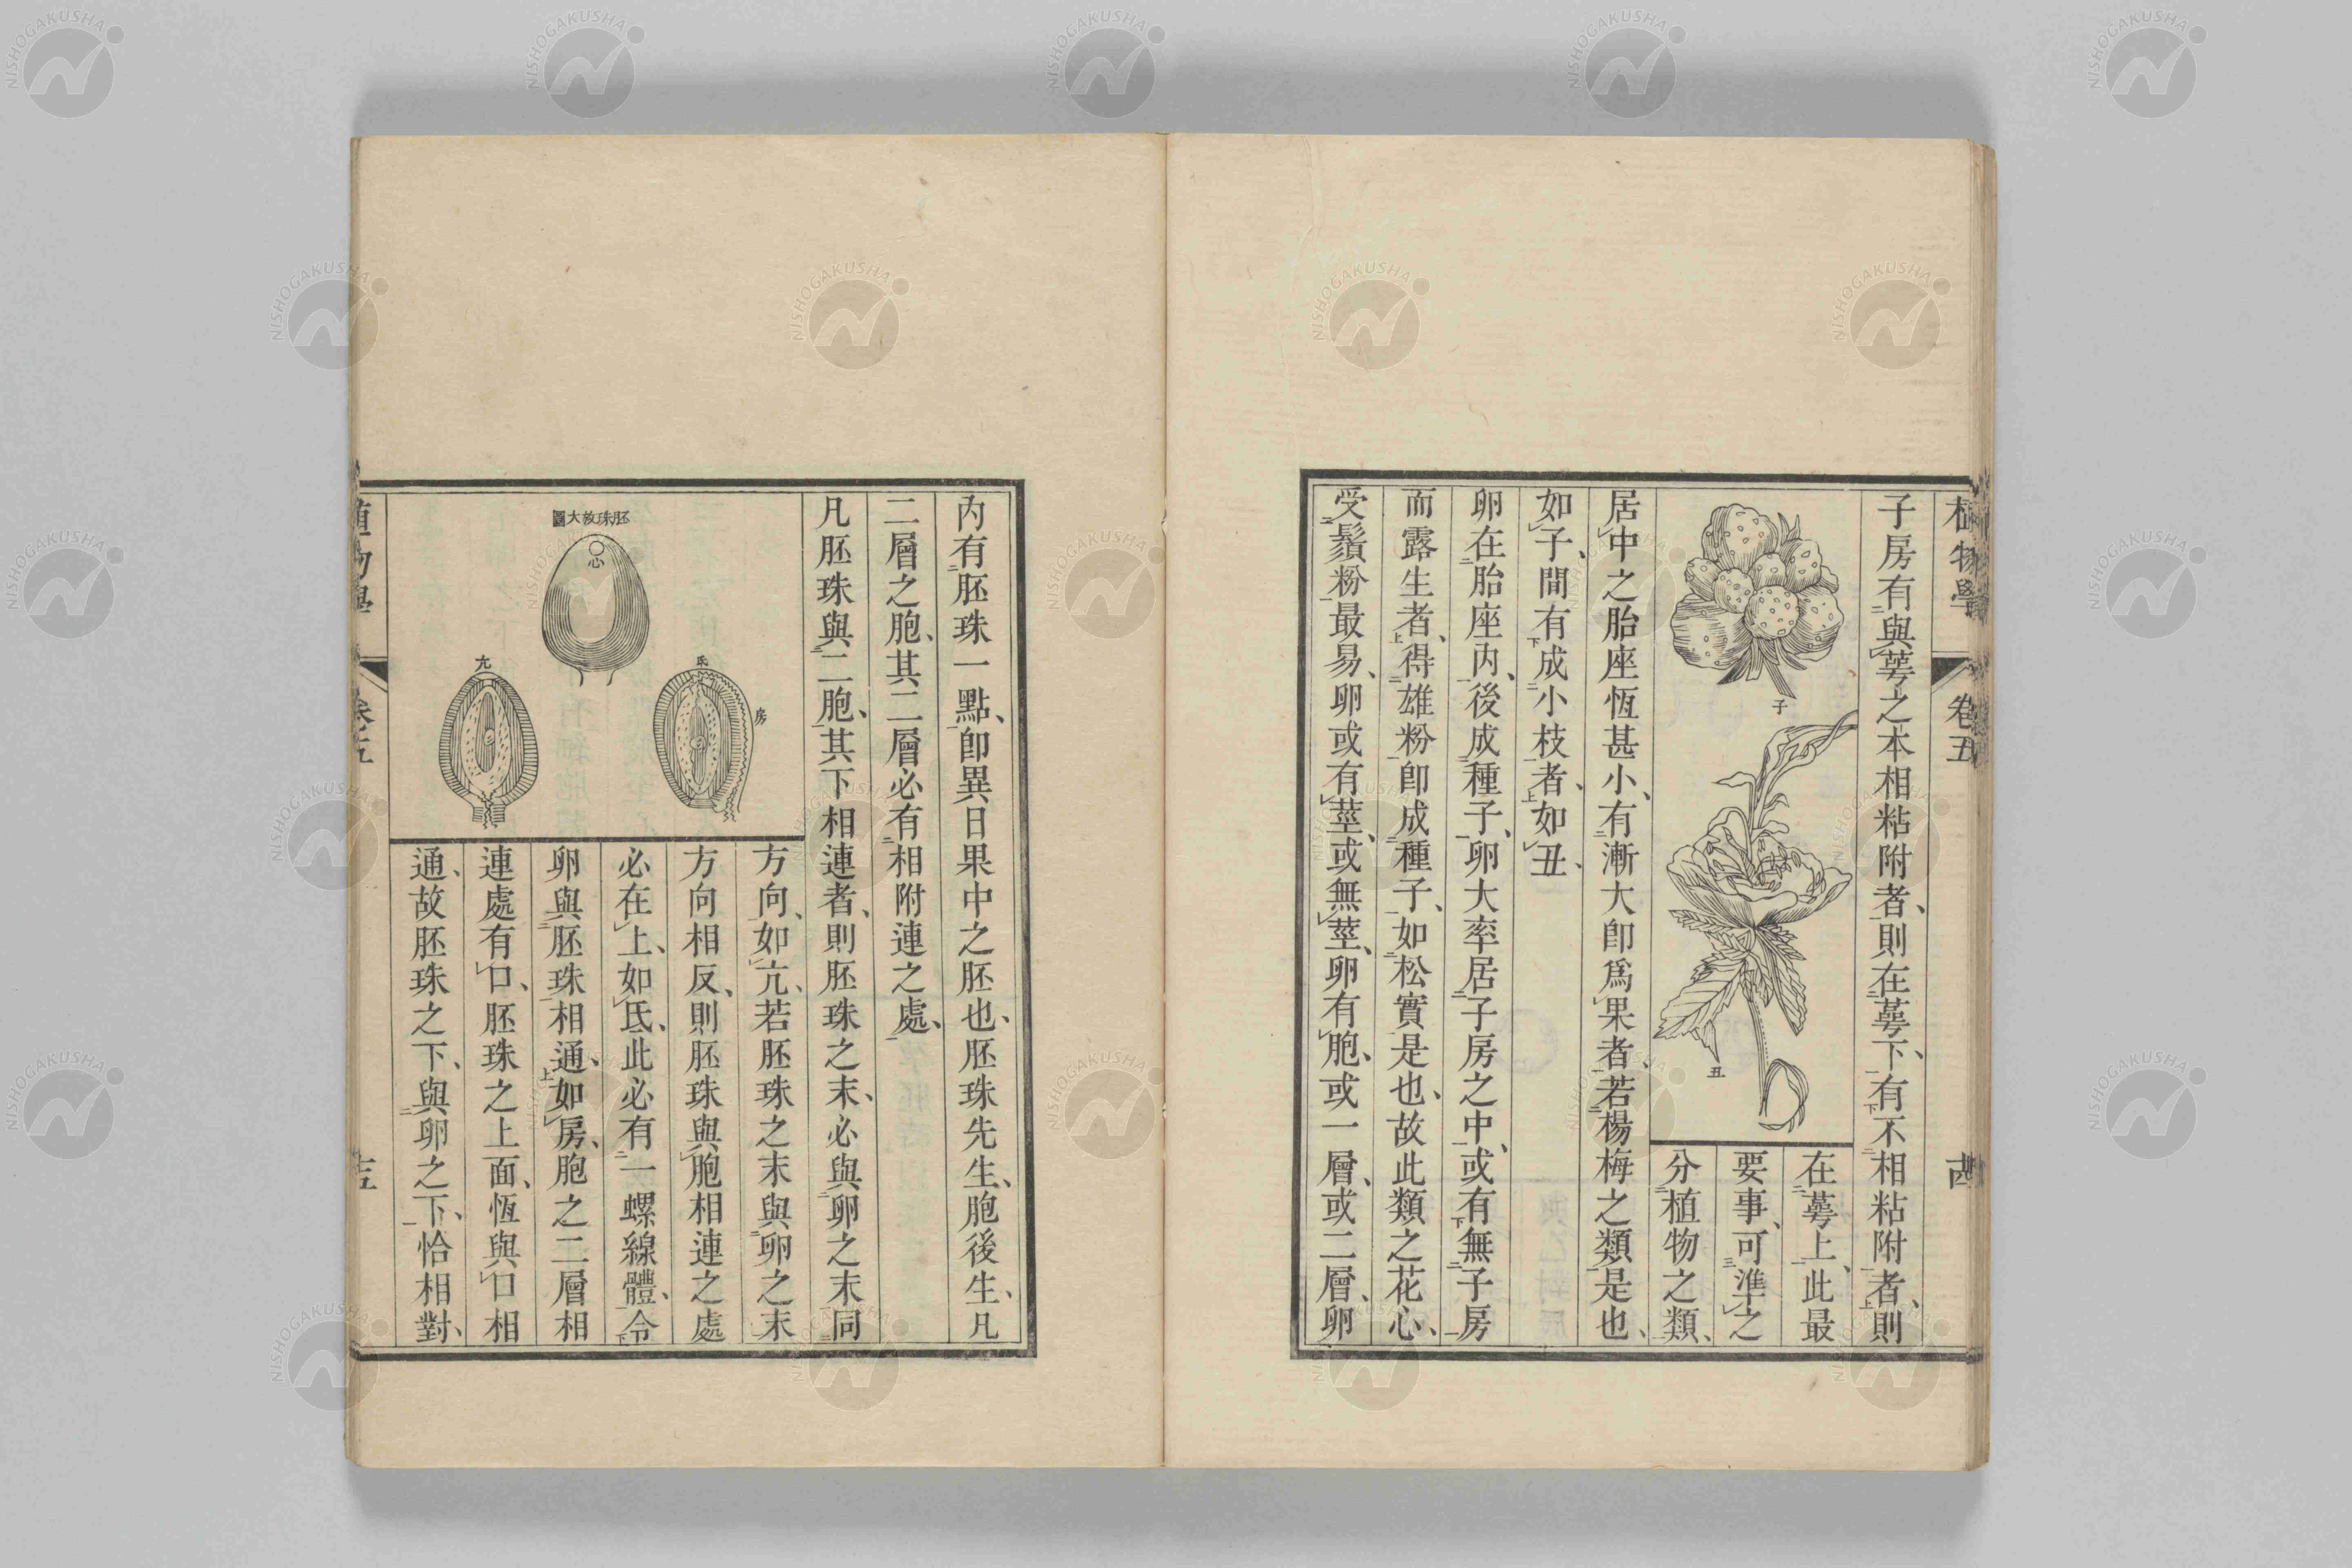 植物學 卷五
子房有與萼之本相粘附者、則在萼下、有不相粘附者、則
子
丑
在萼上、此最
要事、可準之
分植物之類、
居中之胎座恆甚小、有漸大卽爲果者、若楊梅之類是也、
如子、間有成小枝者、如丑、
卵在胎座內、後成種子、卵大率居子房之中、或有無子房
而露生者、得雄粉卽成種子、如松實是也、故此類之花心、
受鬚粉最易、卵或有莖、或無莖、卵有胞、或一層、或二層、卵
內有胚珠一點、卽異日果中之胚也、胚珠先生、胞後生、凡
二層之胞、其二層必有相附連之處、
凡胚珠與二胞、其下相連者、則胚珠之末、必與卵之末同
胚珠放大圖
心
氐
房
亢
方向、如亢、若胚珠之末與卵之末
方向相反、則胚珠與胞相連之處
必在上、如氐、此必有一螺線體、令
卵與胚珠相通、如房、胞之二層相
連處有口、胚珠之上面、恆與口相
通、故胚珠之下、與卵之下、恰相對、
植物學 卷五
NISHOGAKUSHA